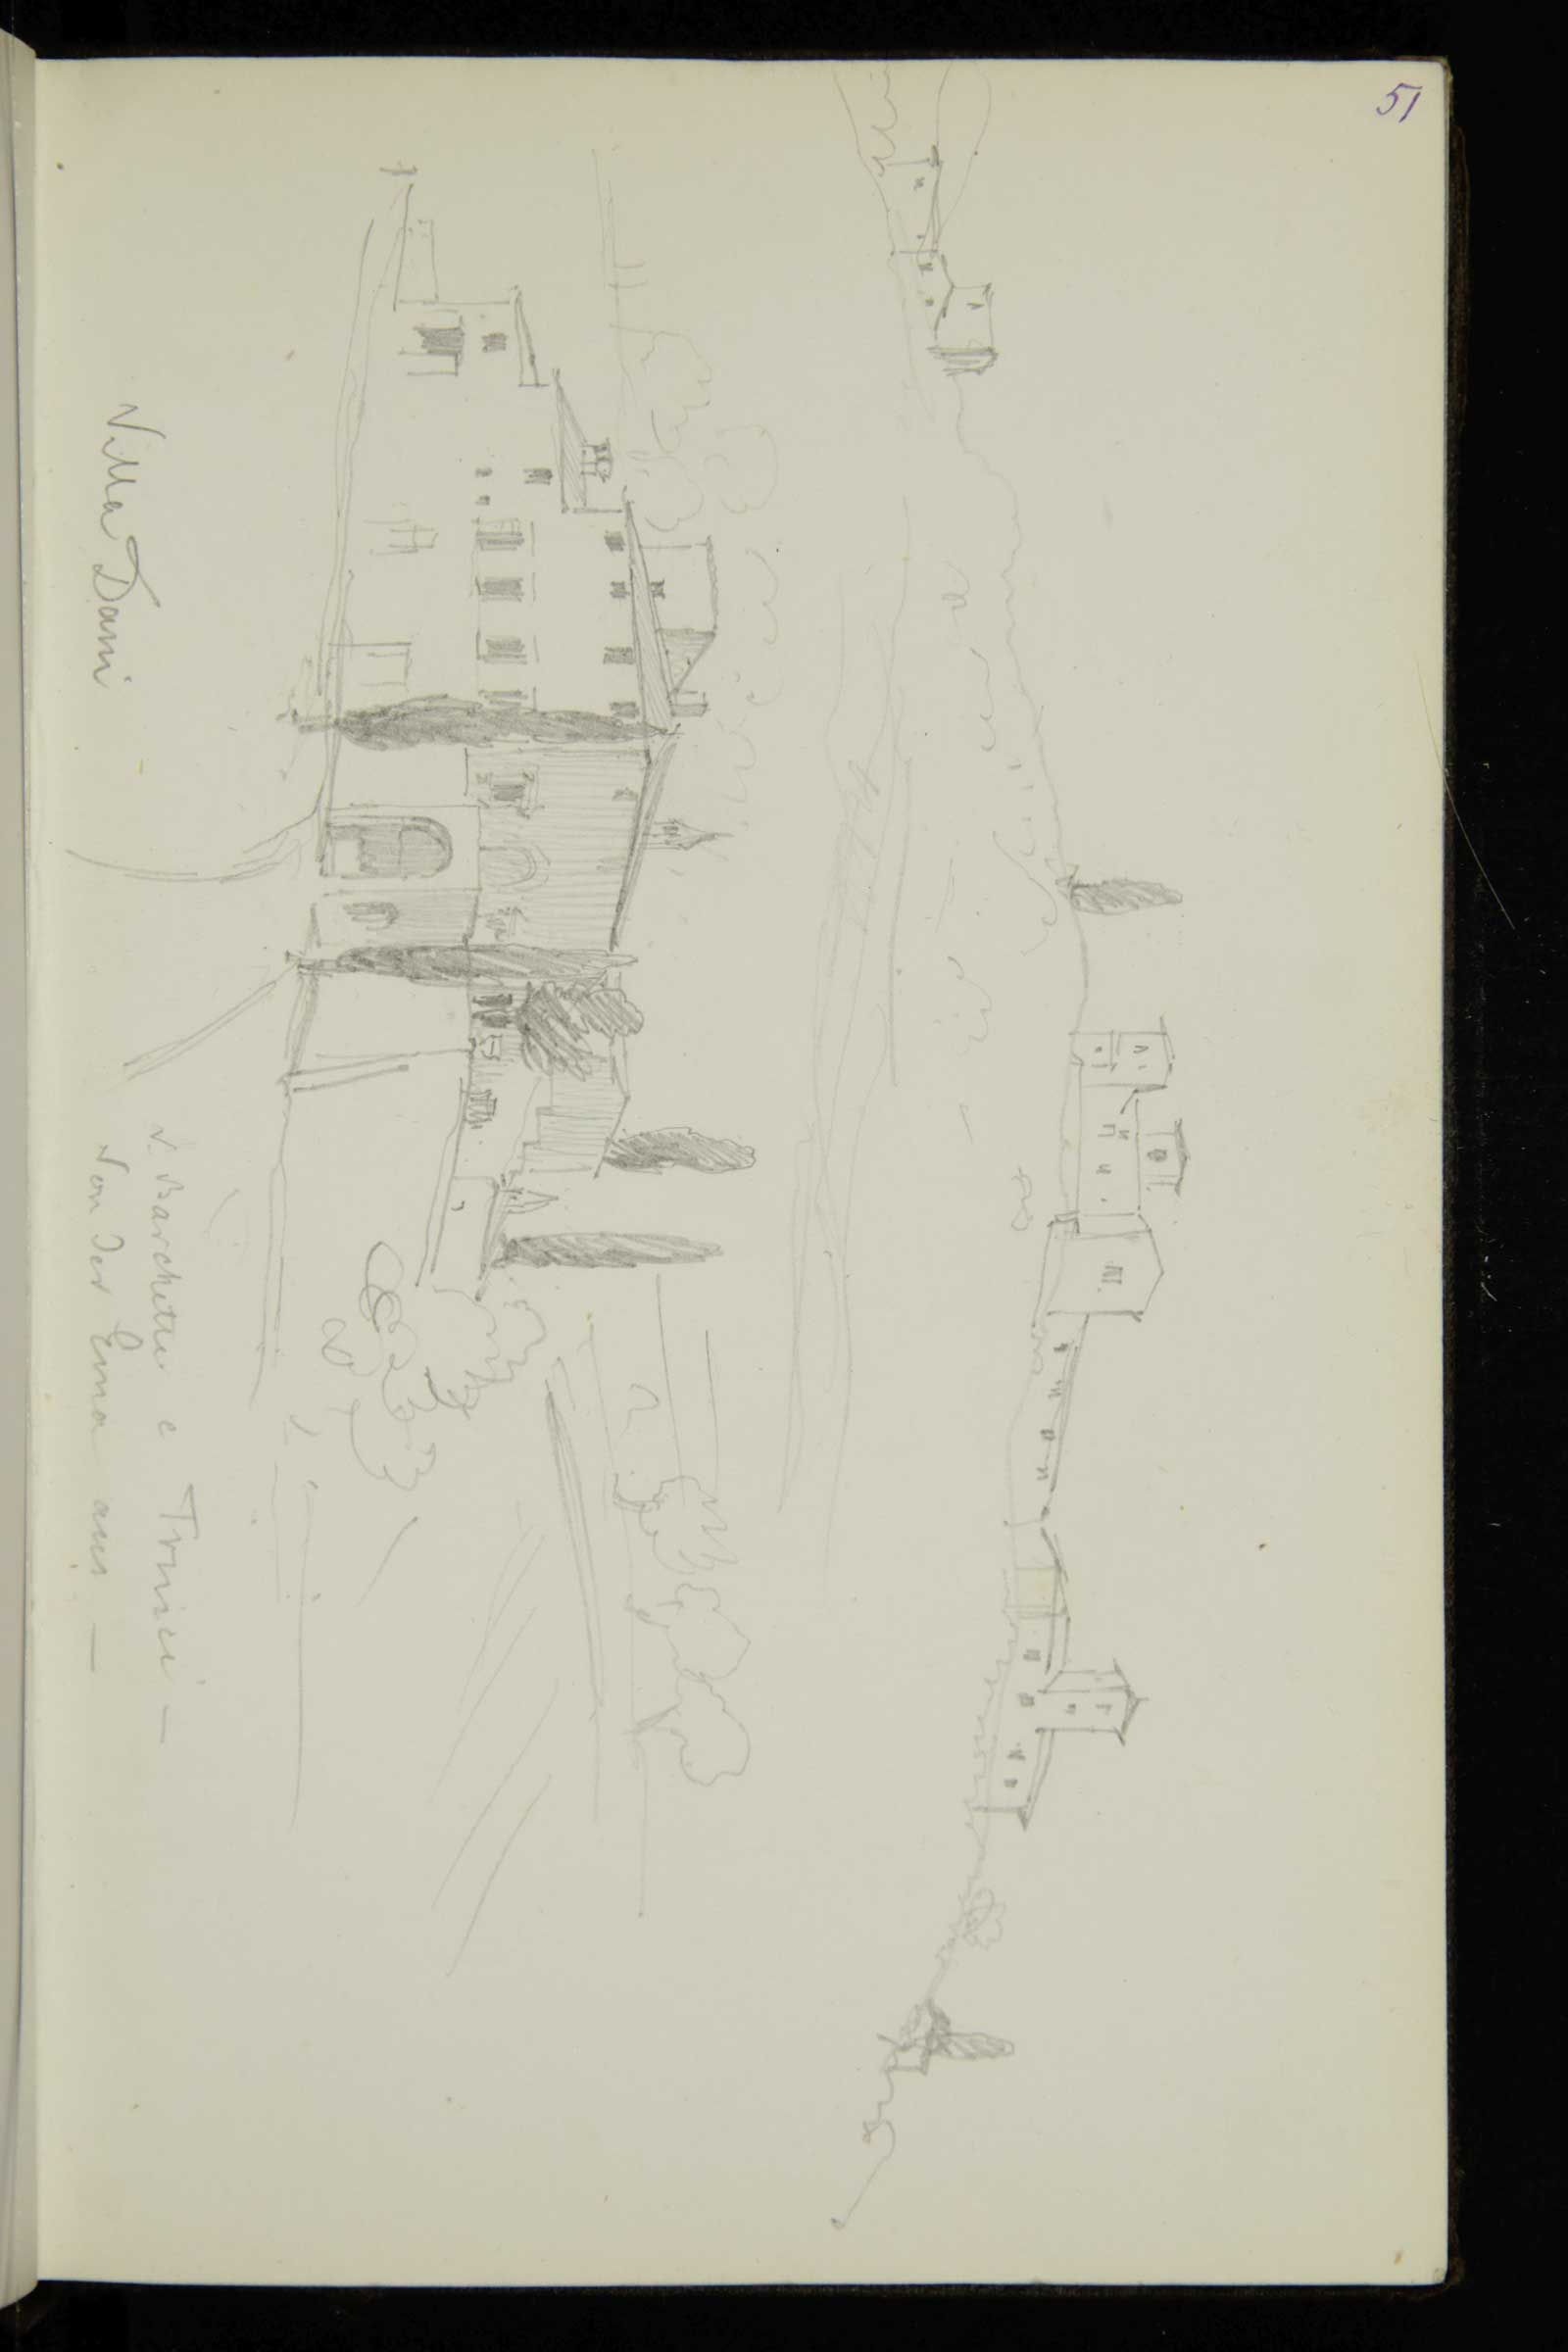 51
Villa Dani
v. Barchetti e Trucci —
Von der Ema aus —